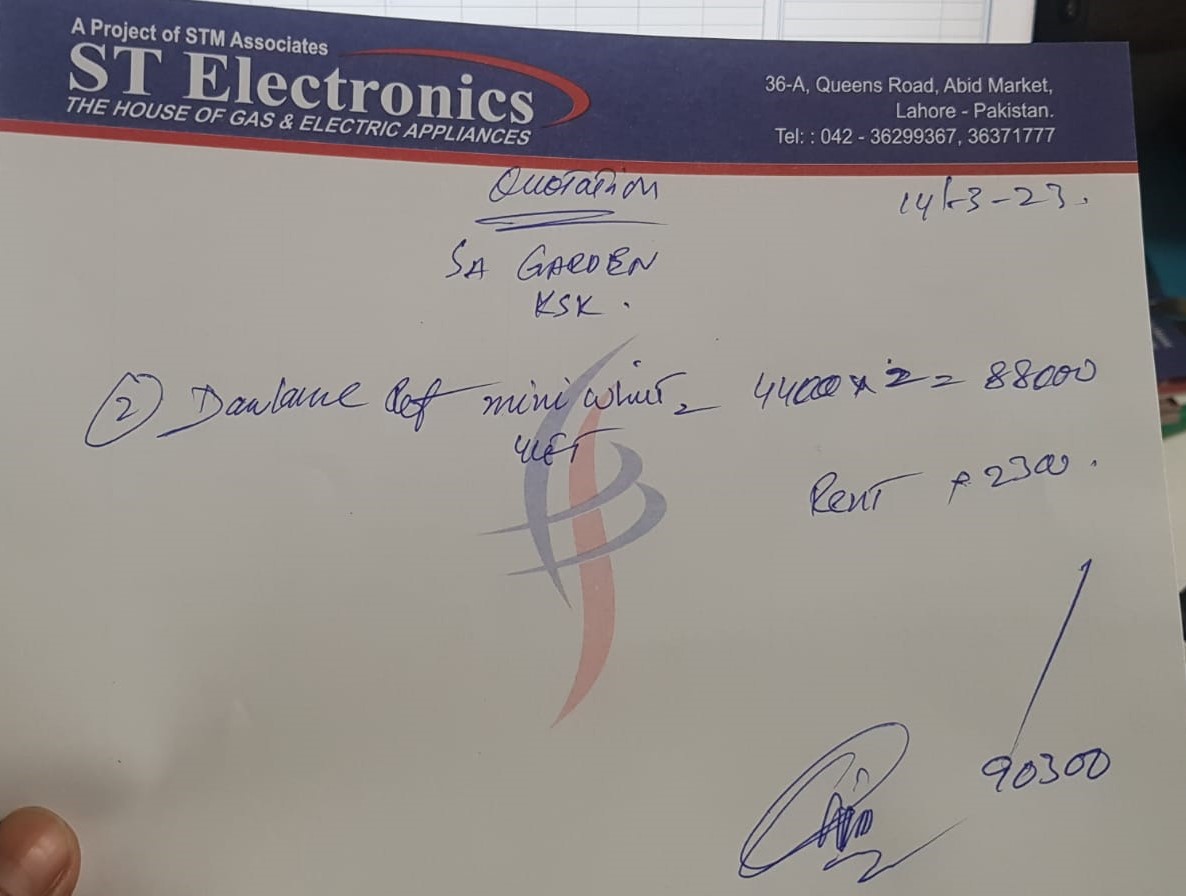 A Project of STM Associates
ST Electronics
THE HOUSE OF GAS & ELECTRIC APPLIANCES
36-A, Queens Road, Abid Market,
Lahore - Pakistan.
Tel: : 042 - 36299367, 36371777
Quotation
14-3-23.
SA GARDEN
KSK.
(2) Dawlance Ref mini white = 44000 x 2 = 88000
Rent + 2300.
90300